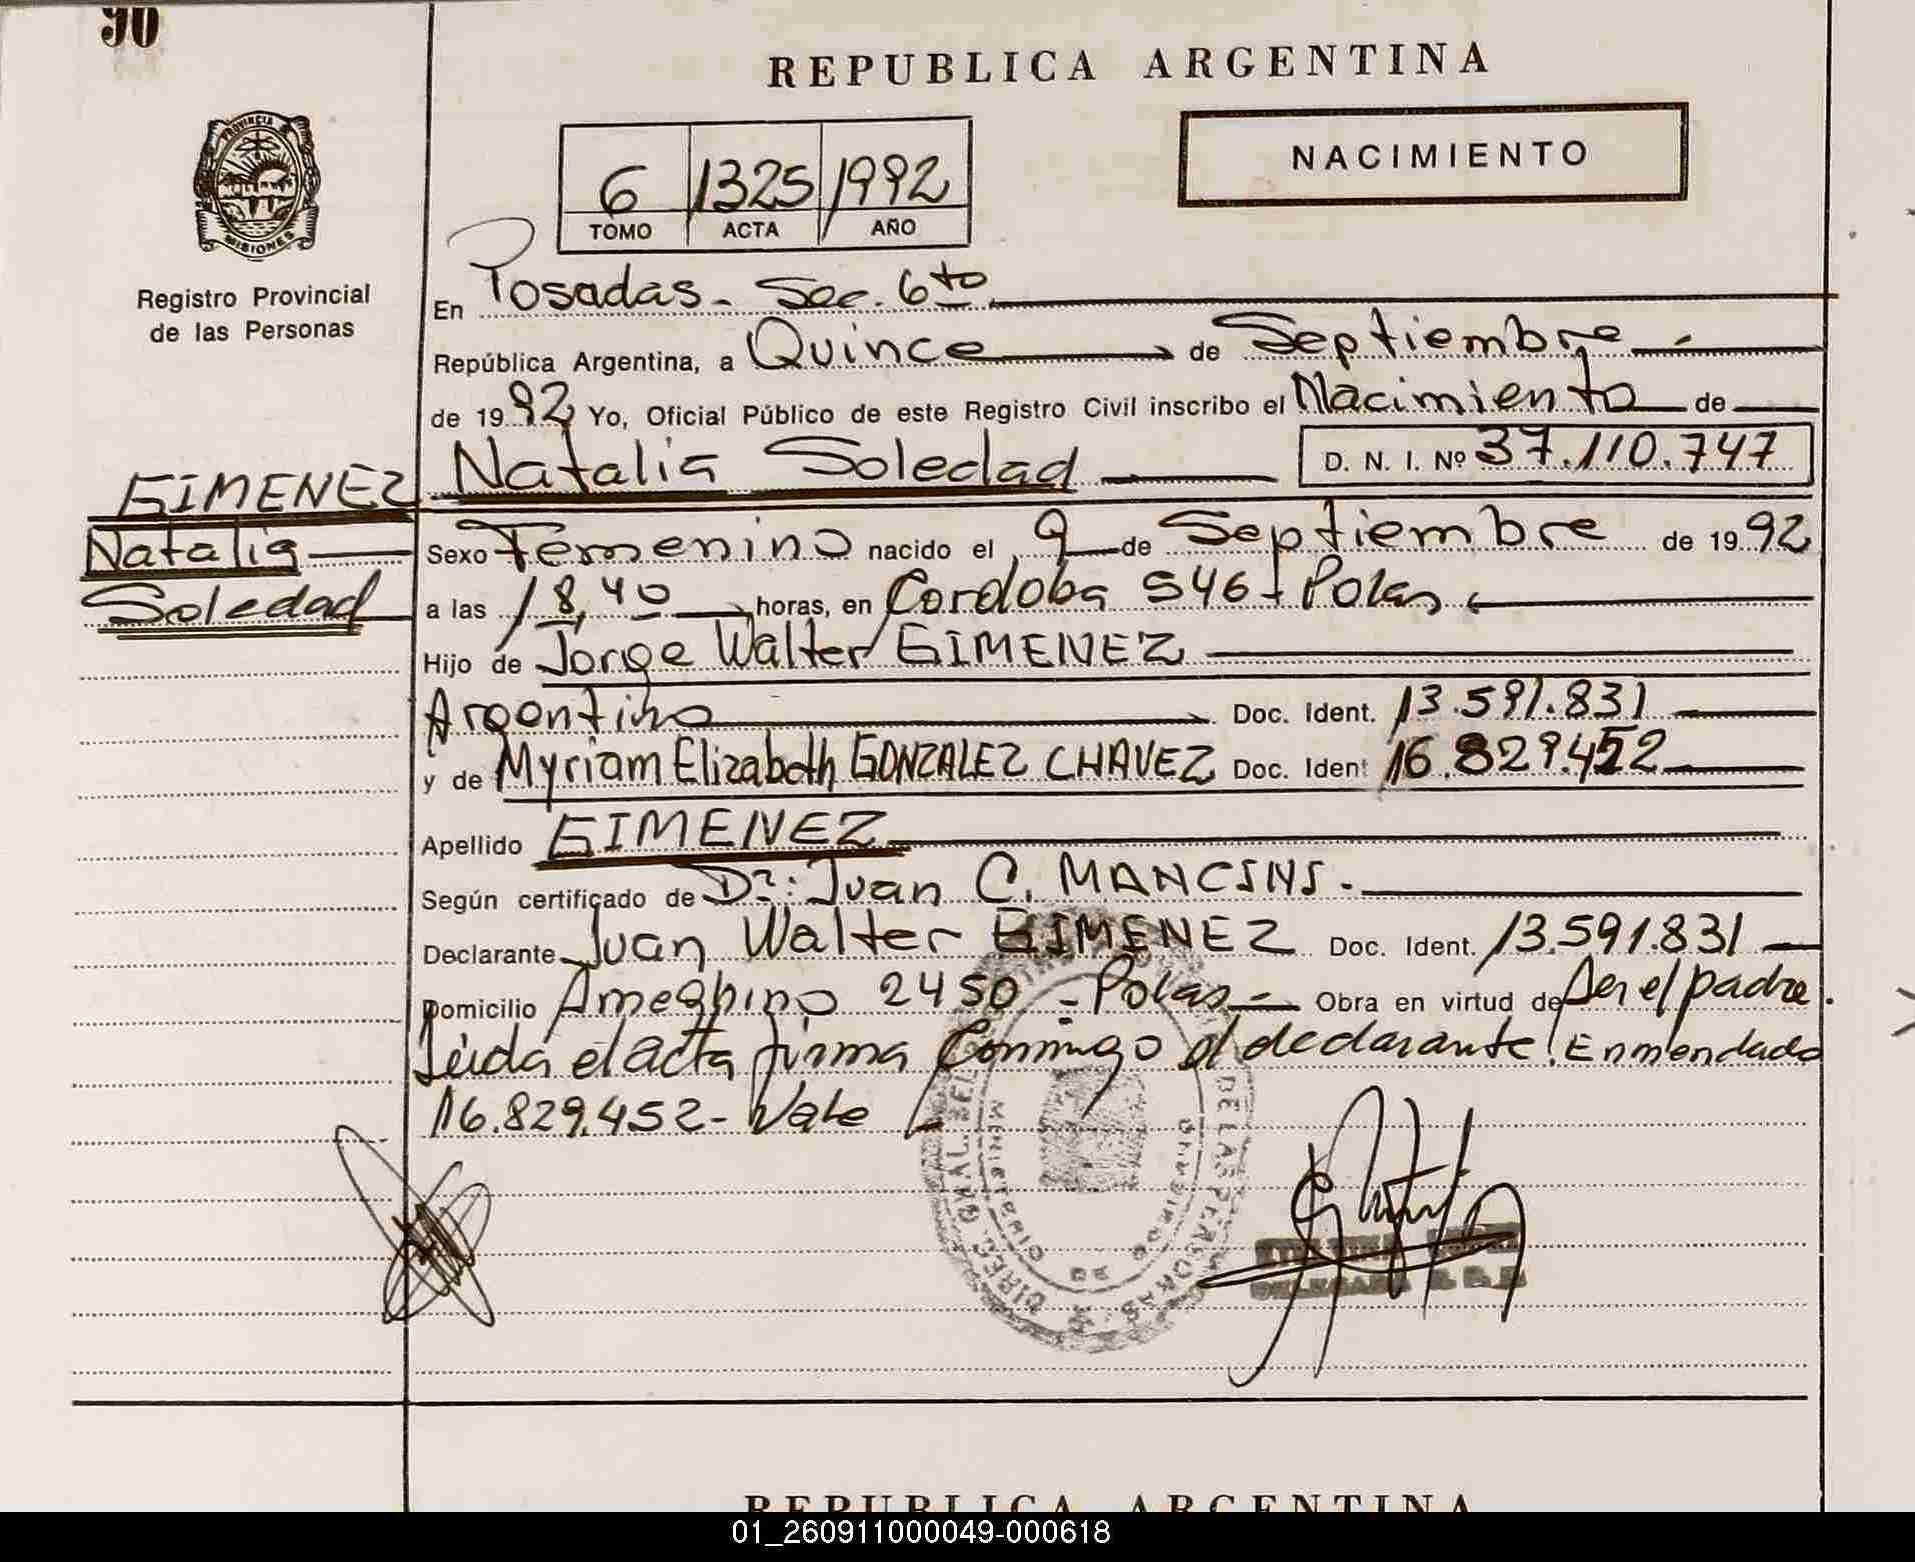 90
REPUBLICA ARGENTINA
NACIMIENTO
6 1325 1992
TOMO ACTA AÑO
PROVINCIA
MISIONES
Registro Provincial
de las Personas
En Posadas - Sec. 6to
República Argentina, a Quince de Septiembre
de 1992 Yo, Oficial Público de este Registro Civil inscribo el Nacimiento de
GIMENEZ Natalia Soledad D. N. I. Nº 37.110.747
Natalia Sexo Femenino nacido el 9 de Septiembre de 1992
Soledad a las 18,40 horas, en Cordoba 546 - Pdas
Hijo de Jorge Walter GIMENEZ
Argentino Doc. Ident. 13.591.831
y de Myriam Elizabeth GONZALEZ CHAVEZ Doc. Ident 16.829.452
Apellido GIMENEZ
Según certificado de Dr: Juan C. MANCINI.
Declarante Juan Walter GIMENEZ Doc. Ident. 13.591.831
Domicilio Ameghino 2450 - Pdas - Obra en virtud de Ser el padre.
Leida el acta firma conmigo el declarante! Enmendado
16.829.452 - Vale
DE LAS PERSONAS
MINISTERIO DE GOBIERNO
REPUBLICA ARGENTINA
01_260911000049-000618